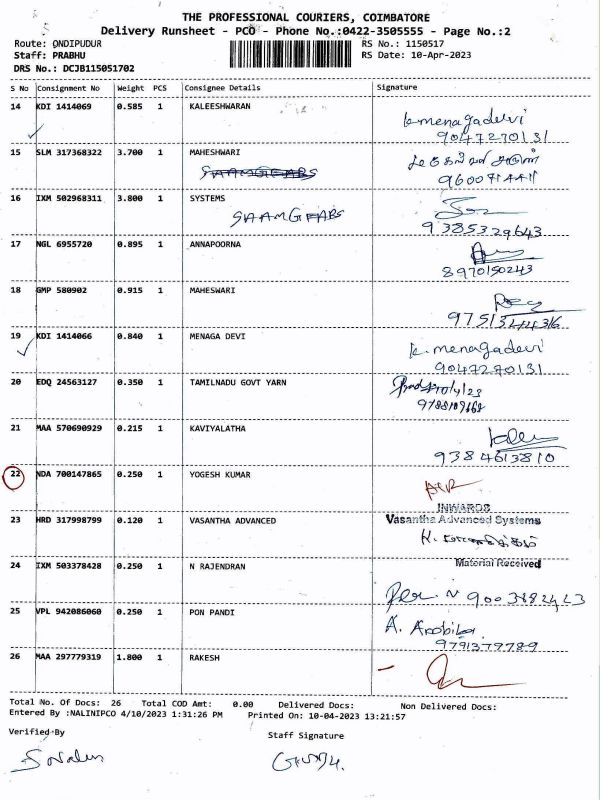 THE PROFESSIONAL COURIERS, COIMBATORE
Delivery Runsheet - PCO - Phone No.:0422-3505555 - Page No.:2
Route: ONDIPUDUR RS No.: 1150517
Staff: PRABHU RS Date: 10-Apr-2023
DRS No.: DCJB115051702
S No Consignment No Weight PCS Consignee Details Signature
14 KDI 1414069 0.585 1 KALEESHWARAN k.menagadevi
9047270131
15 SLM 317368322 3.700 1 MAHESHWARI
SAAMGEARS
16 IXM 502968311 3.800 1 SYSTEMS
SAAMGEARS 9385329643
17 NGL 6955720 0.895 1 ANNAPOORNA
8970150243
18 GMP 580902 0.915 1 MAHESWARI
19 KDI 1414066 0.840 1 MENAGA DEVI k. menagadevi
9047270131
20 EDQ 24563127 0.350 1 TAMILNADU GOVT YARN
21 MAA 570690929 0.215 1 KAVIYALATHA
9384613810
22 NDA 700147865 0.250 1 YOGESH KUMAR
INWARDS
23 HRD 317998799 0.120 1 VASANTHA ADVANCED Vasantha Advanced Systems
24 IXM 503378428 0.250 1 N RAJENDRAN Material Received
25 VPL 942086060 0.250 1 PON PANDI
9791379789
26 MAA 297779319 1.800 1 RAKESH
Total No. Of Docs: 26 Total COD Amt: 0.00 Delivered Docs: Non Delivered Docs:
Entered By :NALINIPCO 4/10/2023 1:31:26 PM Printed On: 10-04-2023 13:21:57
Verified By Staff Signature